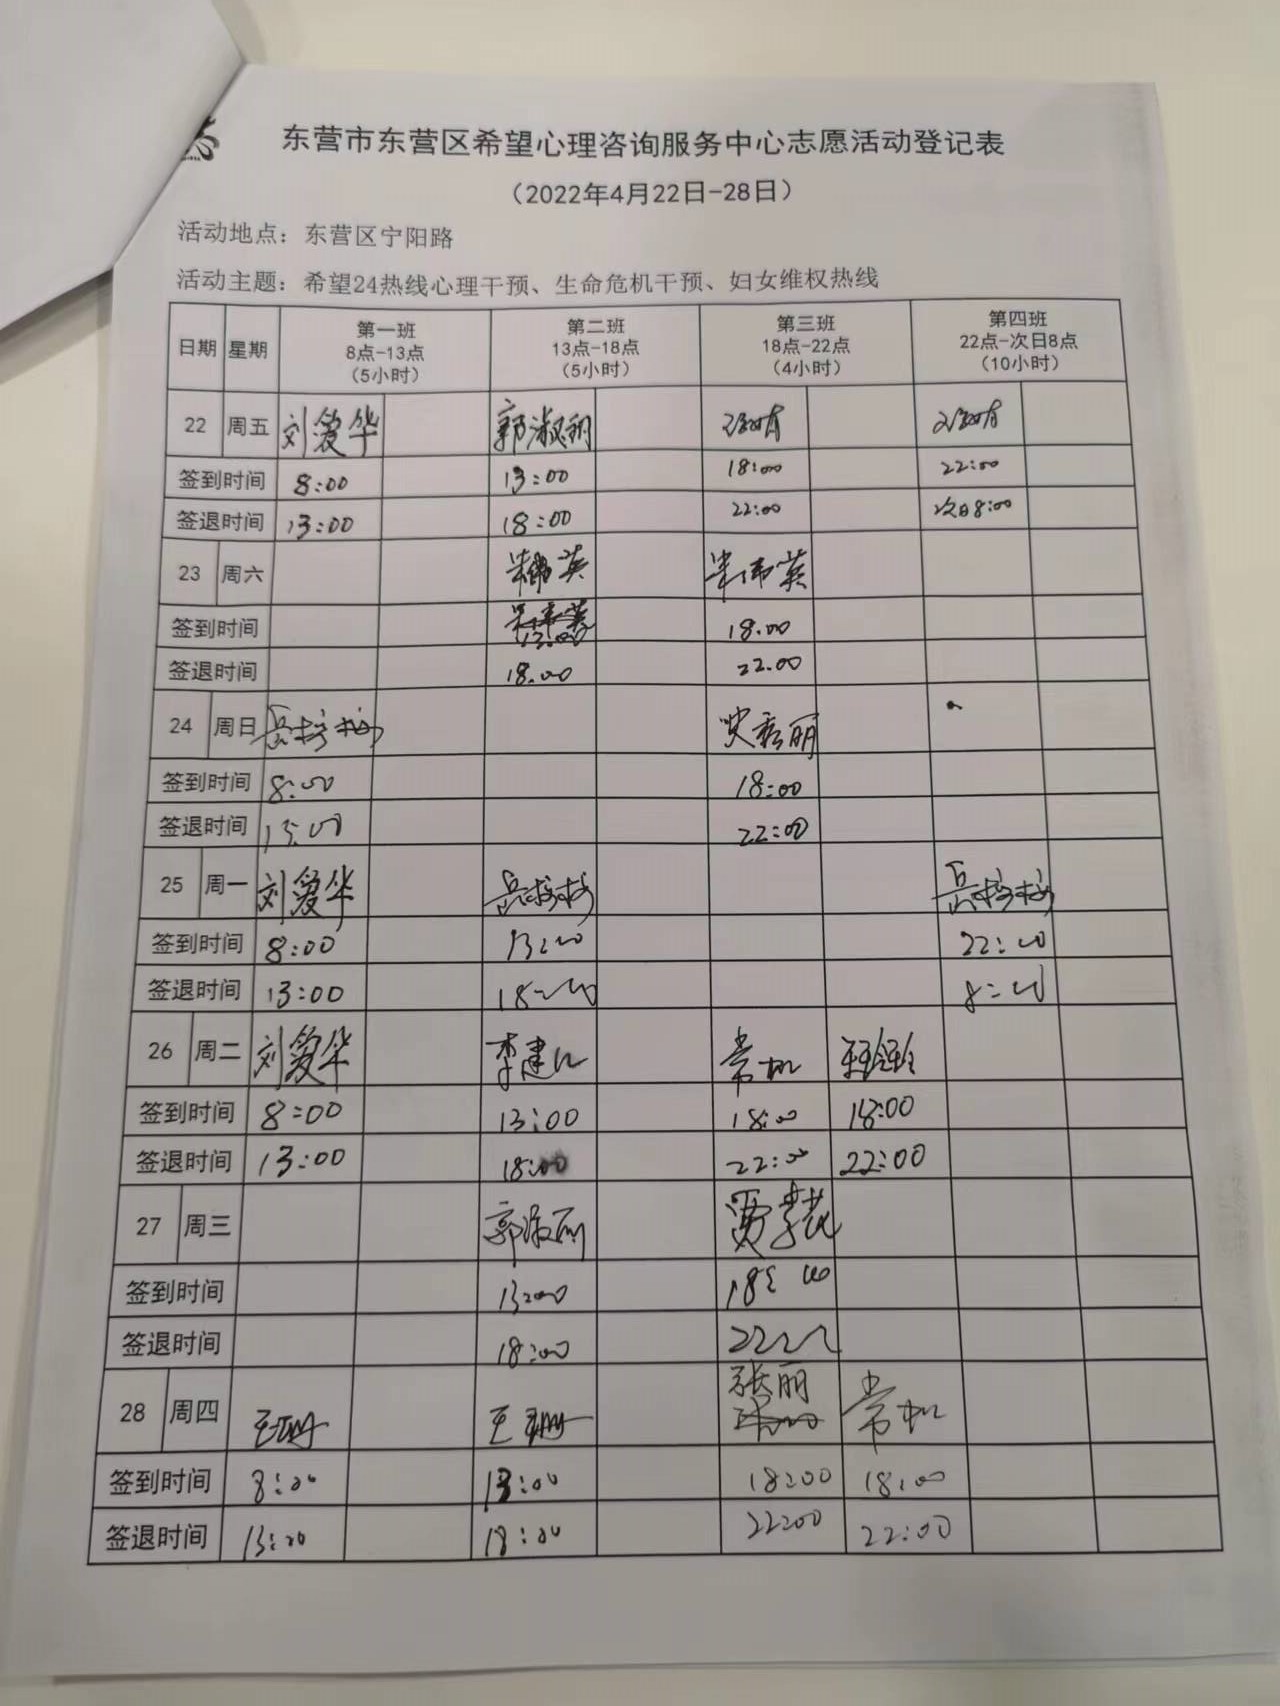 东营市东营区希望心理咨询服务中心志愿活动登记表
（2022年4月22日-28日）
活动地点：东营区宁阳路
活动主题：希望24热线心理干预、生命危机干预、妇女维权热线
日期 星期 第一班 8点-13点 （5小时） 第二班 13点-18点 （5小时） 第三班 18点-22点 （4小时） 第四班 22点-次日8点 （10小时）
22 周五 刘爱华 郭淑丽
签到时间 8:00 13:00 18:00 22:00
签退时间 13:00 18:00 22:00 次日8:00
23 周六
签到时间 13.00 18.00
签退时间 18.00 22.00
24 周日 史秀丽
签到时间 8:00 18:00
签退时间 13:00 22:00
25 周一 刘爱华
签到时间 8:00 13:00 22:00
签退时间 13:00 18:00 8:00
26 周二 刘爱华
签到时间 8:00 13:00 18:00 18:00
签退时间 13:00 18:00 22:00 22:00
27 周三 郭淑丽
签到时间 13:00 18:00
签退时间 18:00 22
28 周四 王珊 王珊 张丽
签到时间 8:00 13:00 18:00 18:00
签退时间 13:00 18:00 22:00 22:00